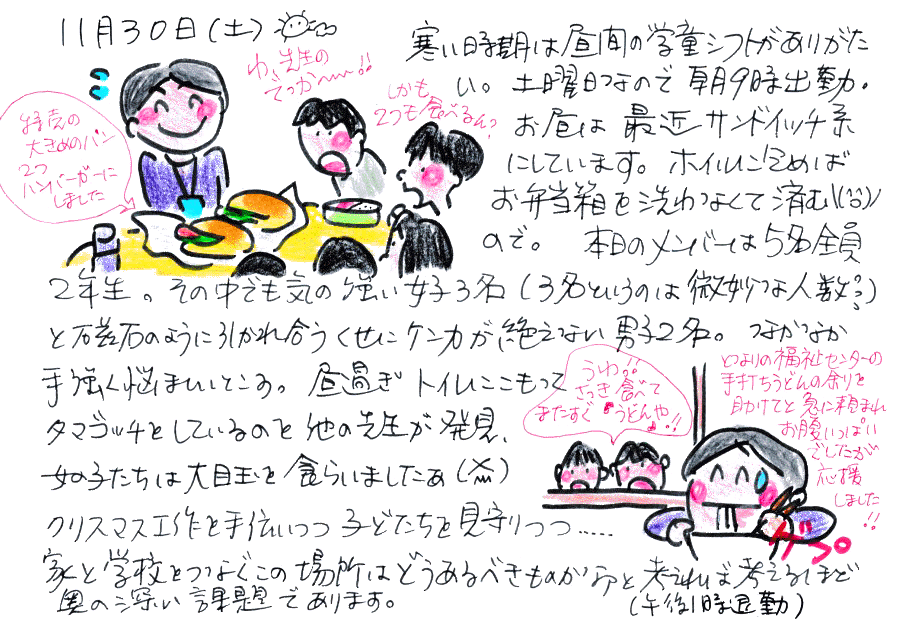 11月30日(土)
寒い時期は昼間の学童シフトがありがた
い。土曜日なので朝9時出勤。
お昼は最近サンドイッチ系
にしています。ホイルに包めば
お弁当箱を洗わなくて済む
ので。 本日のメンバーは5名全員
2年生。その中でも気の強い女子3名(3名というのは微妙な人数??)
と磁石のように引かれ合うくせにケンカが絶えない男子2名。なかなか
手強く悩ましいところ。昼過ぎトイレにこもって
タマゴッチをしているのを他の先生が発見、
女の子たちは大目玉を食らいましたぁ
クリスマス工作を手伝いつつ子どもたちを見守りつつ……
家と学校をつなぐこの場所はどうあるべきものか
と考えれば考えるほど
奥の深い課題であります。
(午後1時退勤)
わ、先生の
でっか〜〜!!
しかも
2つも食べるん?
特売の
大きめのパン
2つ
ハンバーガーに
しました
うわ!!
さっき食べて
またすぐうどんや!!
となりの福祉センターの
手打ちうどんの余りを
助けてと急に頼まれ
お腹いっぱい
でしたが
応援
しました
!!
ゲプ